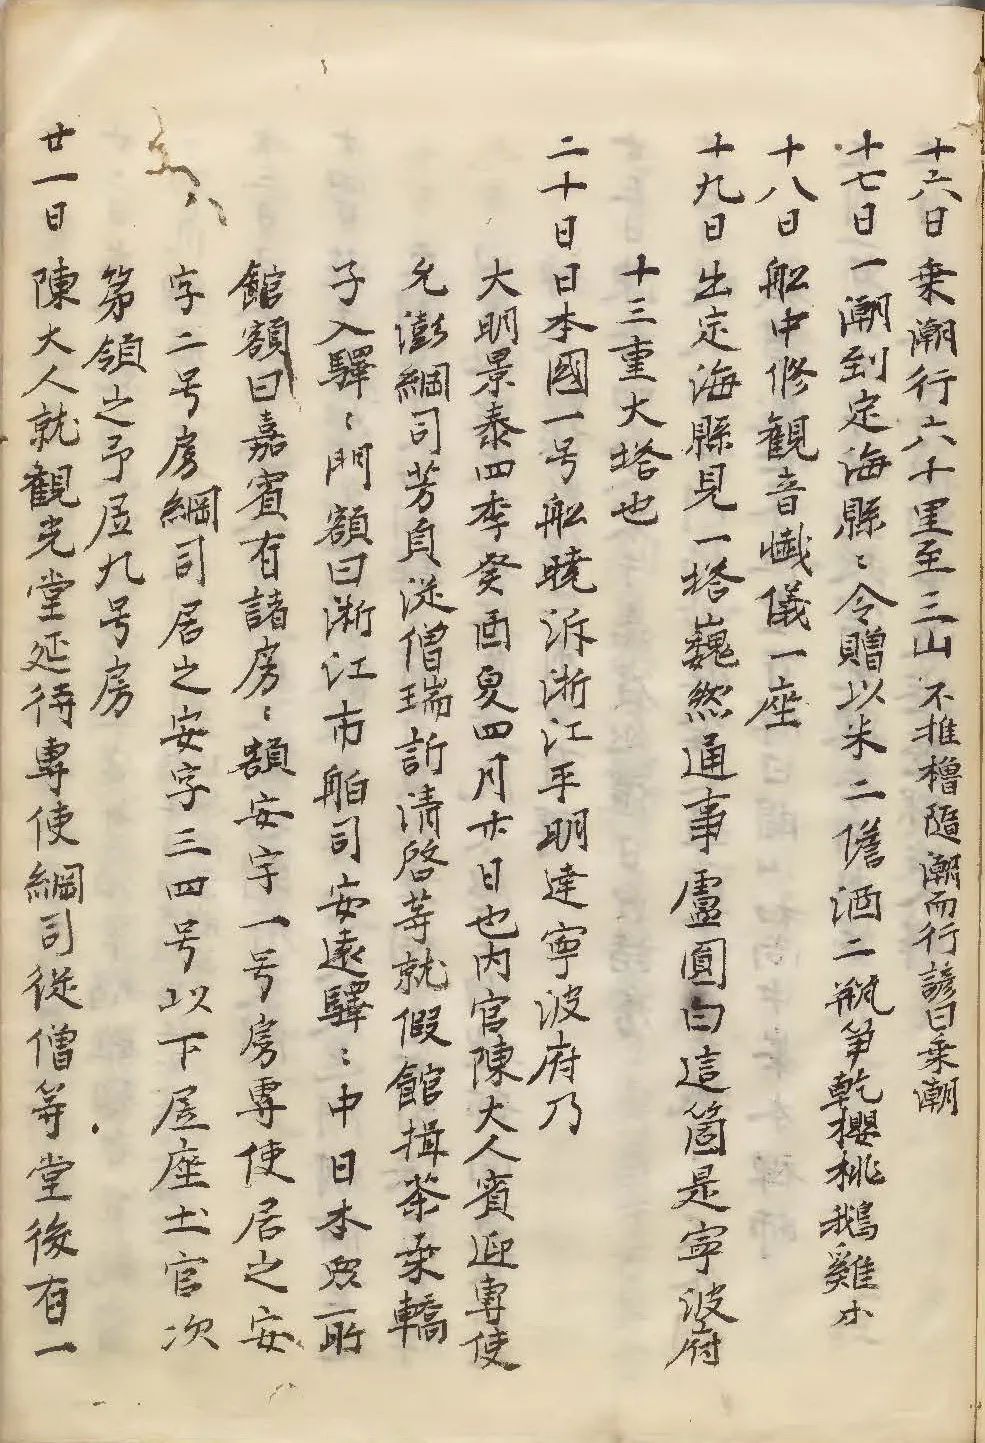 十六日乗潮行六十里至三山不推櫓隨潮而行諺曰乗潮
十七日一潮到定海縣〻令贈以米二儋酒二瓶笋乾櫻桃鵝雞小
十八日船中修観音懴儀一座
十九日出定海縣見一塔巍然通事盧圓曰這箇是寧波府
十三重大塔也
二十日日本國一号船暁泝浙江平明達寧波府乃
大明景泰四季癸酉夏四月廿日也内官陳大人賓迎専使
允澎綱司芳貞従僧瑞訢清啓等就假館揖茶乗轎
子入驛〻門額曰淅江市舶司安遠驛〻中日本衆所
館額曰嘉賓有諸房〻額安字一号房専使居之安
字二号房綱司居之安字三四号以下居座土官次
第領之予居九号房
廿一日陳大人就観光堂延待専使綱司従僧等堂後有一